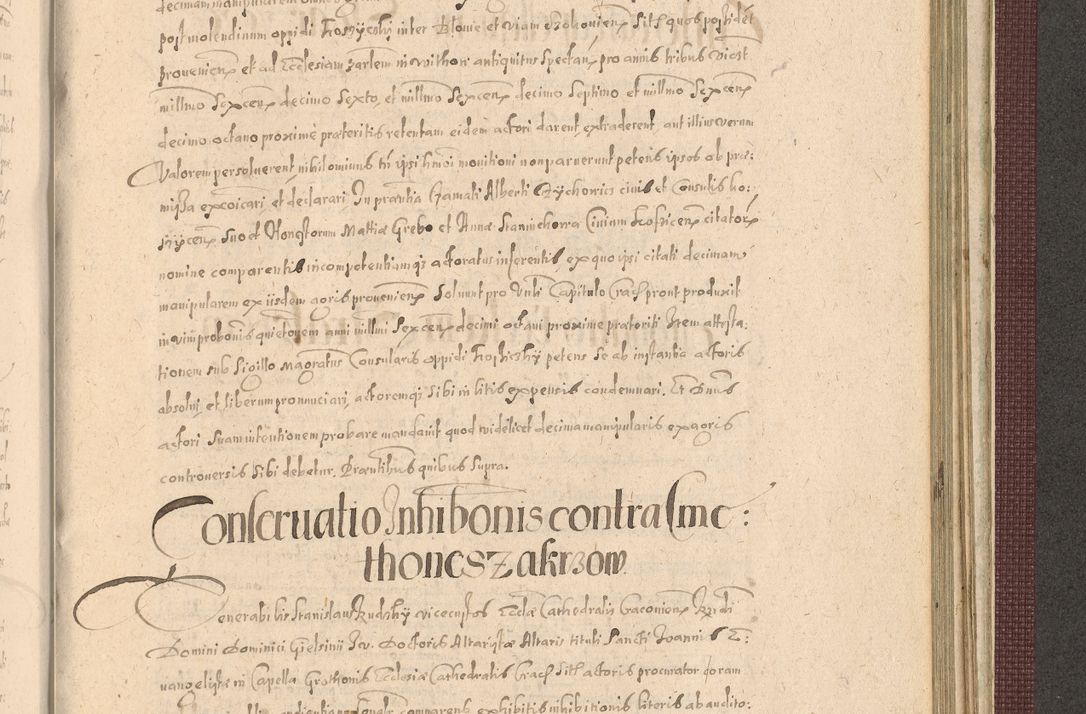 post molendinum oppidi Koszyczky inter Blonie et viam Krokovien sitis quos possidet
provenien et ad Ecclesiam partem in Withow antiquitus spectan, pro annis tribus videlt
millmo sexcen decimo sexto, et millmo sexcen decimo septimo et millmo sexcen
decimo octavo proxime præteritis retentam eidem actori darent, extraderent, aut illius verum
Valorem persolverent nihilominus tn ipsi hmoi monitioni non paruerunt petens ipsos ob præ:
missa excoicari et declarari. In prætia Gamati Alberti Rychowicz civis et Consulis Ko:
szycen suo et Honestorum Mattiæ Grebo et Annæ Civium Koszicen citator
nomine comparentis incompetentiamq actoratus inferentis, ex quo ipsi citati decimam
manipularem ex iisdem agris provenien Solvunt pro Vnli Capitulo Crac prout produxit
in vim probonis quietonem anni millmi sexcen decimi octavi proxime præteriti Item attesta:
tionem sub Sigillo Magratus Consularis oppidi Koszicky petens se ab instantia actoris
absolvi, et liberum pronunciari, actoremq sibi in litis expensis condemnari. Et Dnus
actori suam intentionem probare mandavit quod videlicet decima manipularis ex agris
controversis sibi debetur. Præntibus quibus supra.
Conservatio Inhibonis contra Sme:
thones Zakrzow
Venerabilis Stanislaus Rudzky vicecustos Ecclæ Cathedralis Cracovien
Domini Dominici Gielsinii Jcu. Doctoris Altaristæ Altaris tituli Sancti Joannis E:
vangelistæ in Capella Grothonis Ecclesiæ Cathedralis Crac siti actoris procurator coram
comparens exhibitis inhibitionis literis ab audito: